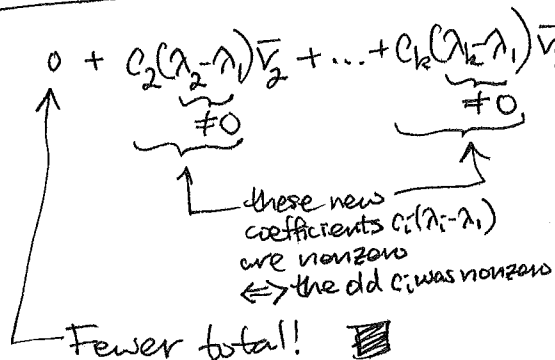 0 + c₂(λ₂-λ₁)v̄₂ + ... + cₖ(λₖ-λ₁)v̄
≠0 ≠0
these new
coefficients cᵢ(λᵢ-λ₁)
are nonzero
⟺ the old cᵢ was nonzero
Fewer total!